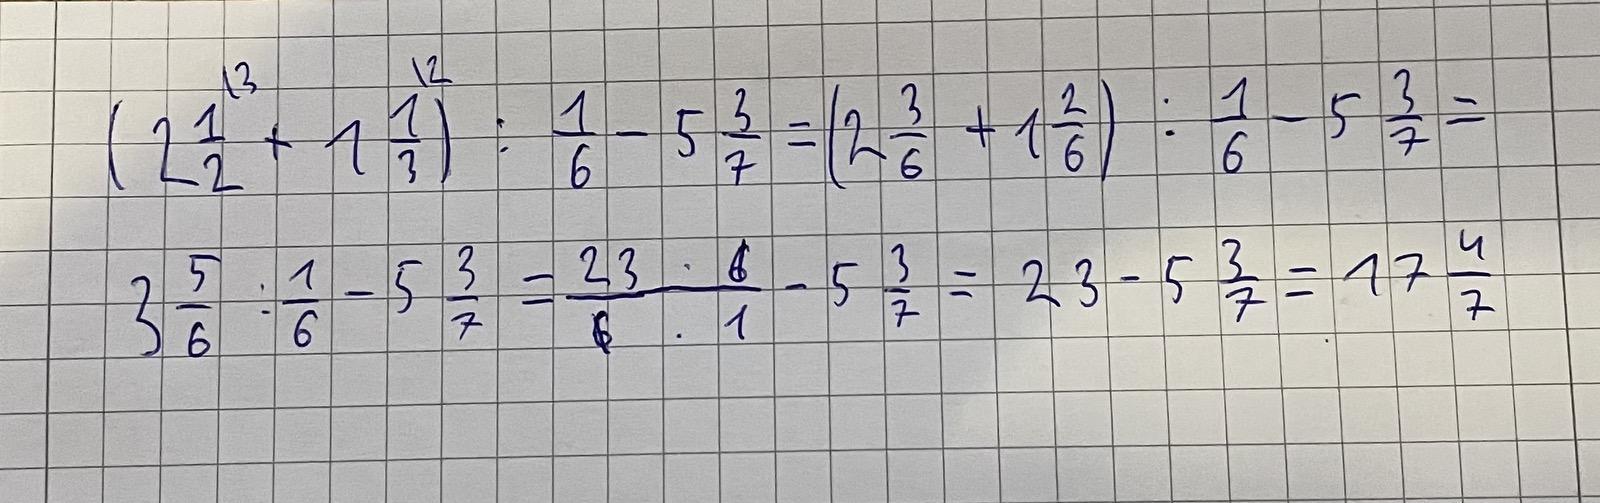 (2 1/2 \3 + 1 1/3 \2) : 1/6 - 5 3/7 = (2 3/6 + 1 2/6) : 1/6 - 5 3/7 =
3 5/6 : 1/6 - 5 3/7 = 23 · 6 / 6 · 1 - 5 3/7 = 23 - 5 3/7 = 17 4/7